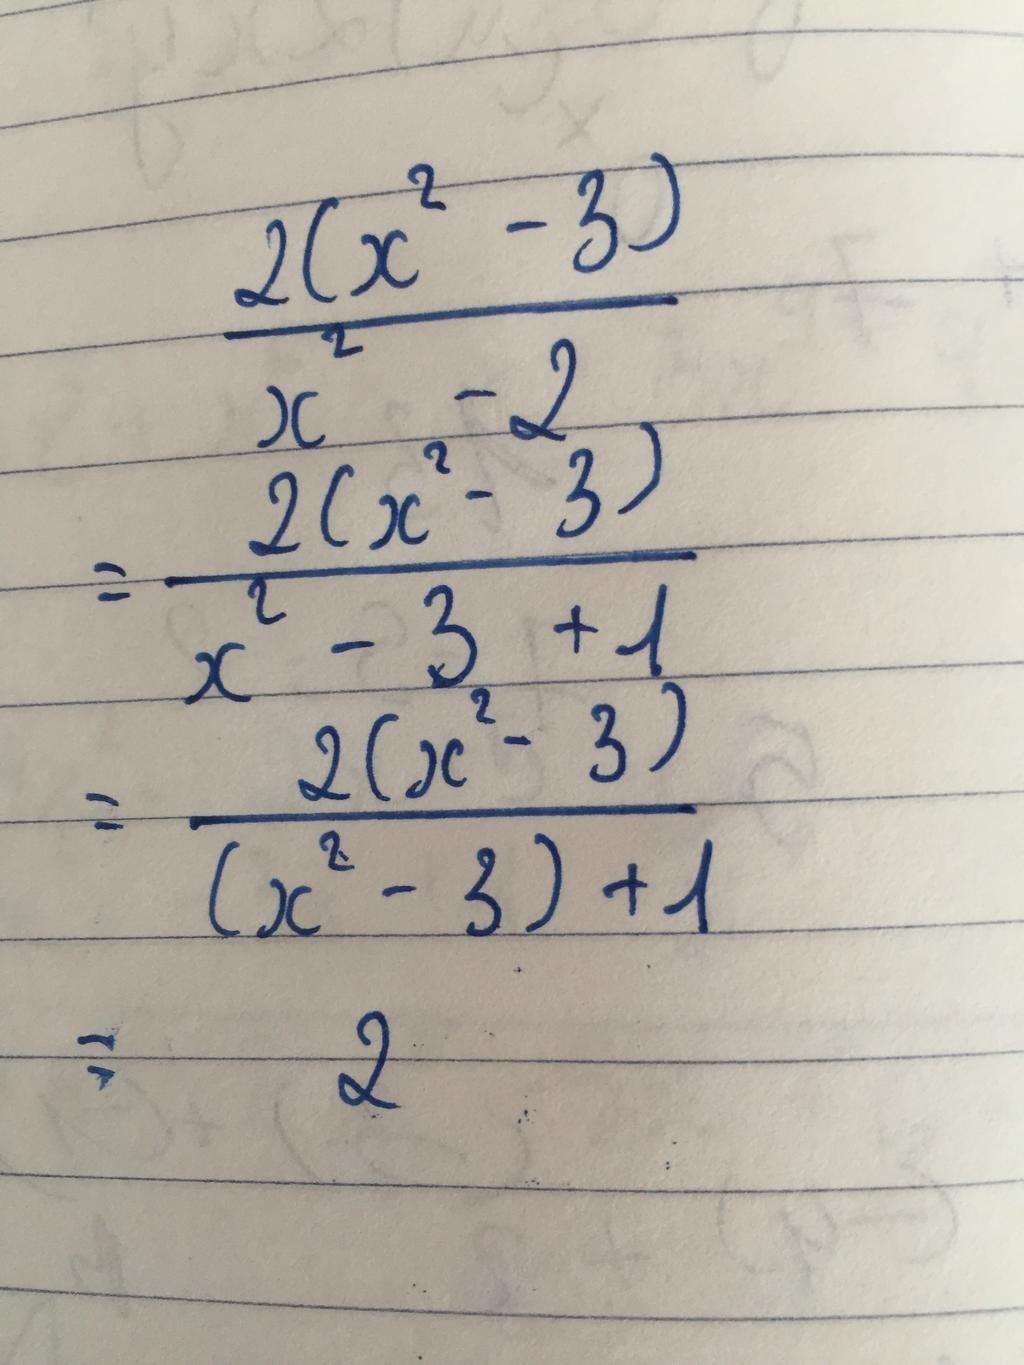 2(x² - 3)
x² - 2
= 2(x² - 3)
x² - 3 + 1
= 2(x² - 3)
(x² - 3) + 1
= 2